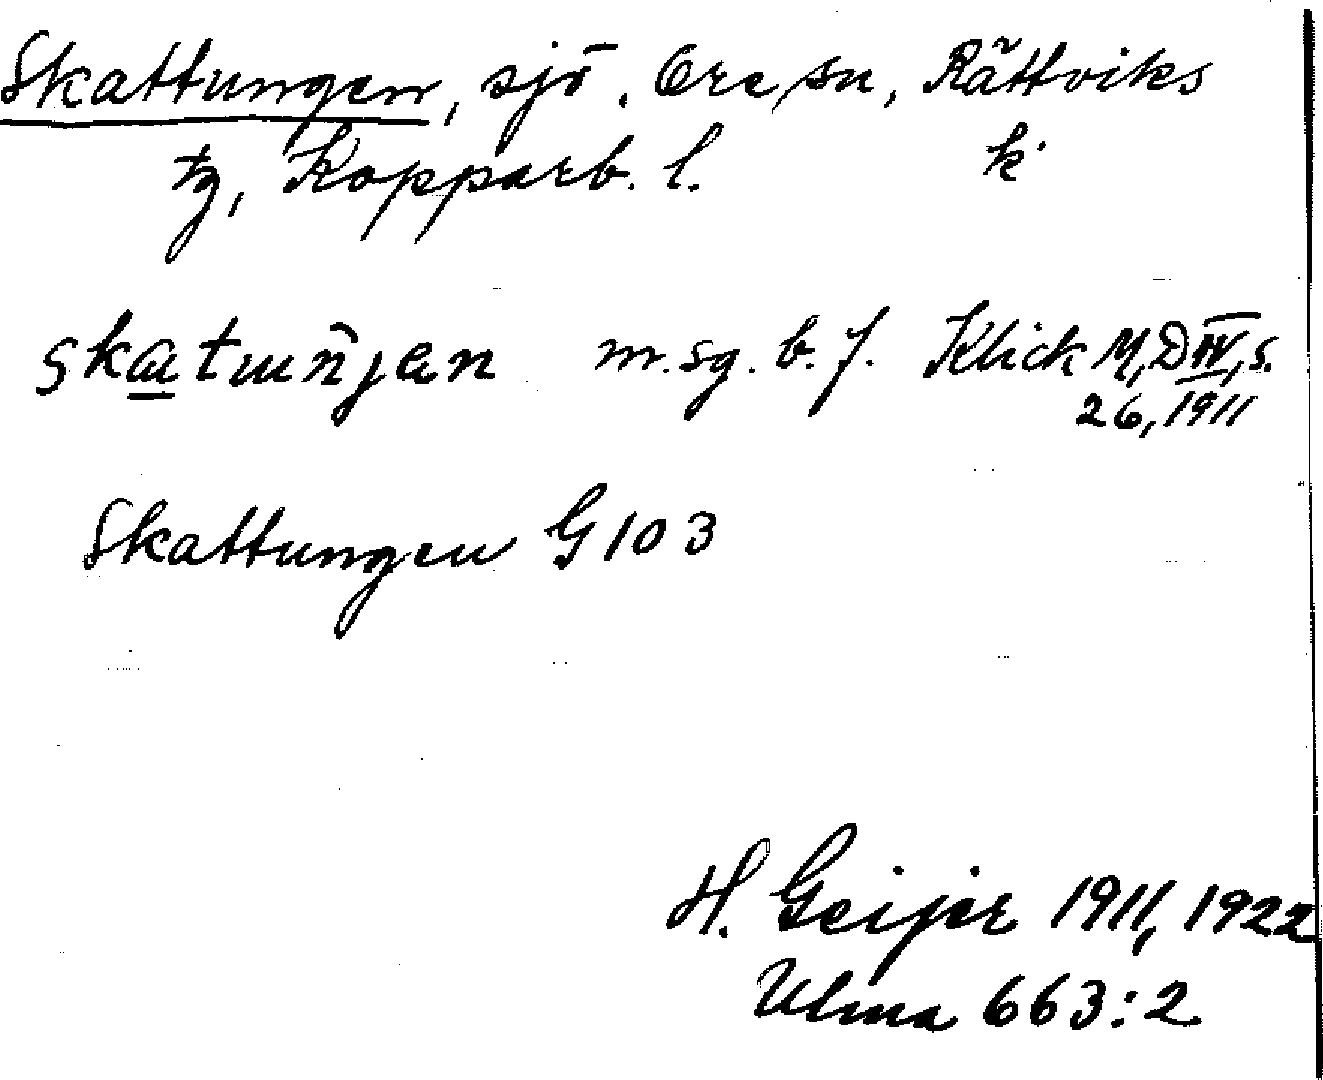 Skattungen, sjö. Ore sn, Rättviks
tg, Kopparb. l. k
skatuŋ̃jen m. sg. b. f. Klick M, D IV, s.
26, 1911
Skattungen G 103
H. Geijer 1911, 1922
Ulma 663:2